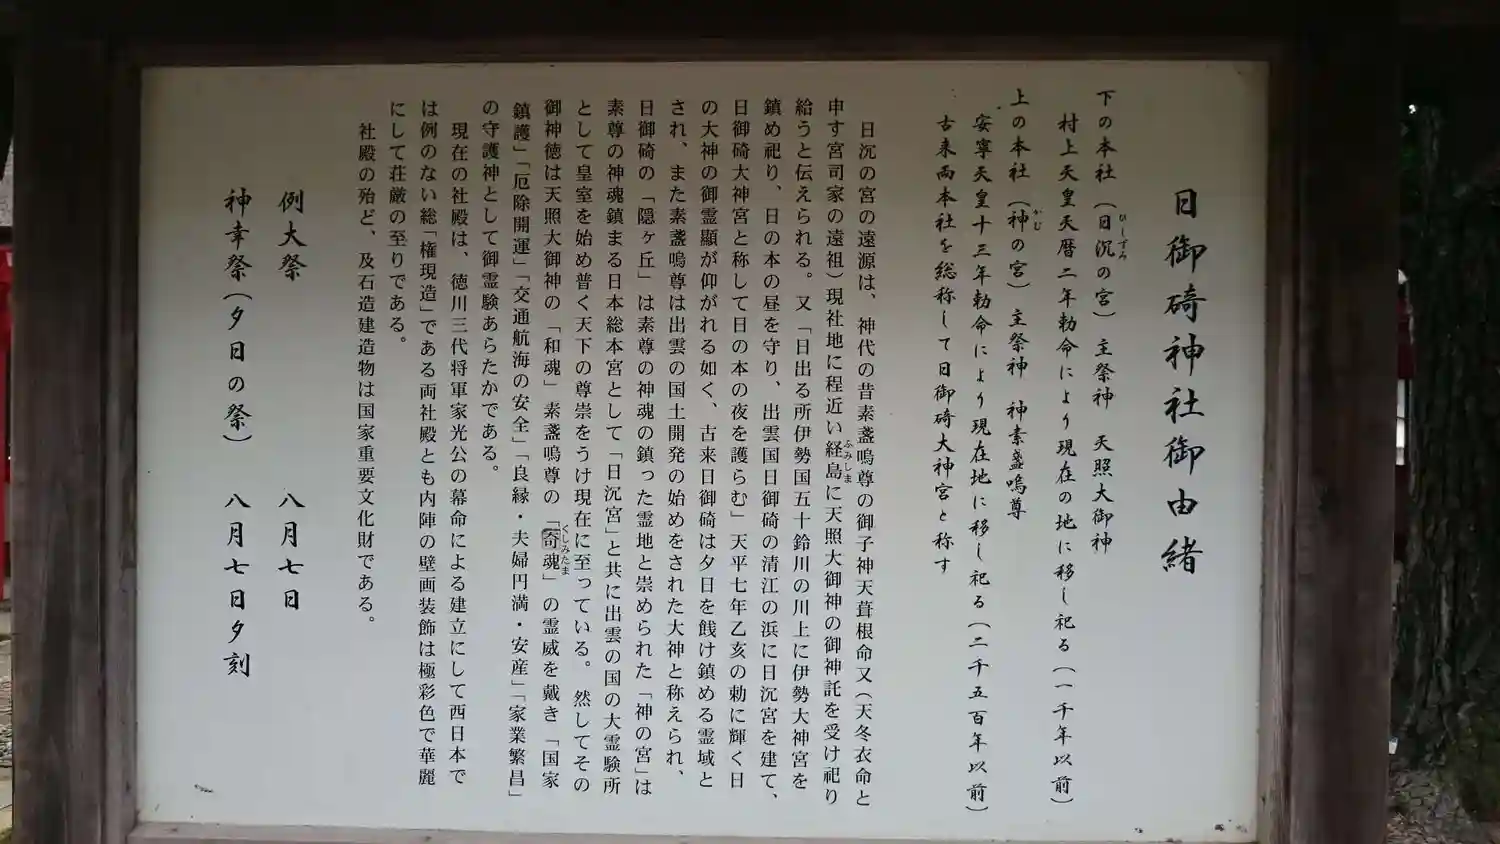 日御碕神社御由緒
下の本社（日沉の宮）　主祭神　天照大御神
ひしずみ
村上天皇天暦二年勅命により現在の地に移し祀る（一千年以前）
上の本社（神の宮）　主祭神　神素盞嗚尊
かむ
安寧天皇十三年勅命により現在地に移し祀る（二千五百年以前）
古来両本社を総称して日御碕大神宮と称す
日沉の宮の遠源は、神代の昔素盞嗚尊の御子神天葺根命又（天冬衣命と
申す宮司家の遠祖）現社地に程近い経島に天照大御神の御神託を受け祀り
ふみしま
給うと伝えられる。又「日出る所伊勢国五十鈴川の川上に伊勢大神宮を
鎮め祀り、日の本の昼を守り、出雲国日御碕の清江の浜に日沉宮を建て、
日御碕大神宮と称して日の本の夜を護らむ」天平七年乙亥の勅に輝く日
の大神の御霊顯が仰がれる如く、古来日御碕は夕日を餞け鎮める霊域と
され、また素盞嗚尊は出雲の国土開発の始めをされた大神と称えられ、
日御碕の「隠ヶ丘」は素尊の神魂の鎮った霊地と崇められた「神の宮」は
素尊の神魂鎮まる日本総本宮として「日沉宮」と共に出雲の国の大霊験所
として皇室を始め普く天下の尊崇をうけ現在に至っている。　然してその
御神徳は天照大御神の「和魂」素盞嗚尊の「奇魂」の霊威を戴き「国家
くしみたま
鎮護」「厄除開運」「交通航海の安全」「良縁・夫婦円満・安産」「家業繁昌」
の守護神として御霊験あらたかである。
現在の社殿は、徳川三代将軍家光公の幕命による建立にして西日本で
は例のない総「権現造」である両社殿とも内陣の壁画装飾は極彩色で華麗
にして荘厳の至りである。
社殿の殆ど、及石造建造物は国家重要文化財である。
例大祭　八月七日
神幸祭（夕日の祭）　八月七日夕刻